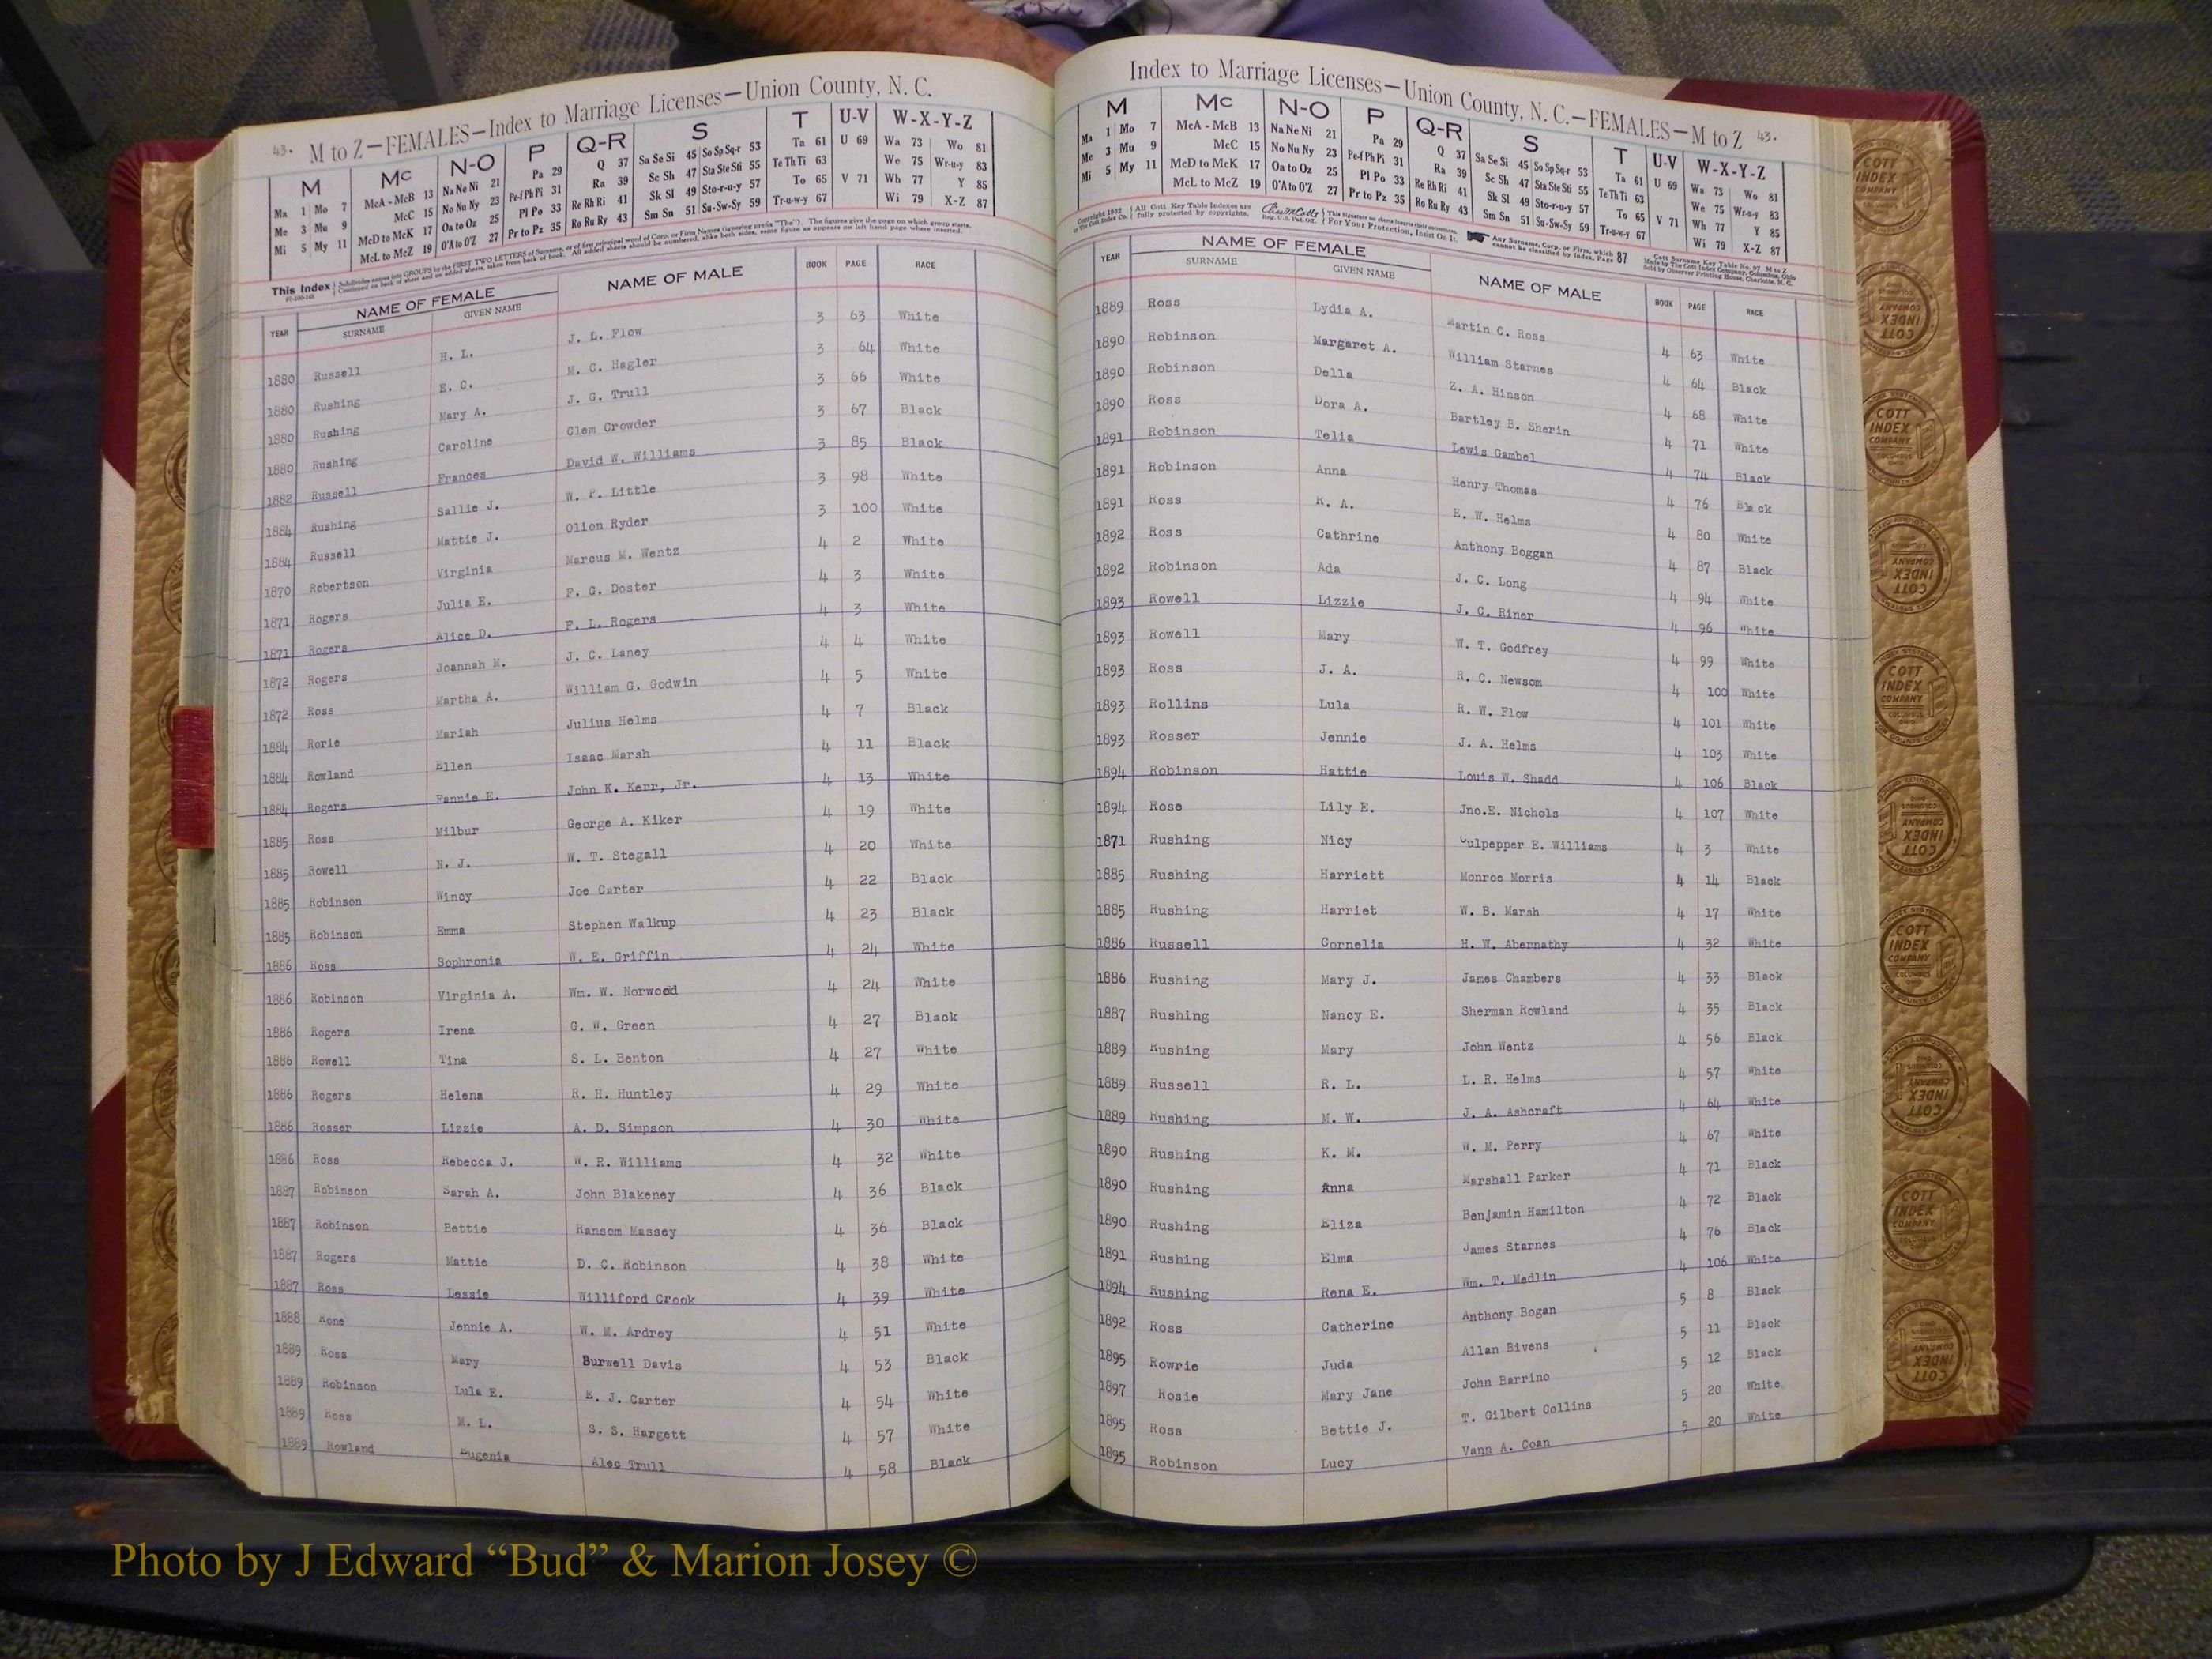 43. M to Z—FEMALES—Index to Marriage Licenses—Union County, N. C.
M Mc N-O P Q-R S T U-V W-X-Y-Z
Ma 1 Mo 7 McA - McB 13 Na Ne Ni 21 Pa 29 Q 37 Sa Se Si 45 So Sp Sq-r 53 Ta 61 U 69 Wa 73 Wo 81
Me 3 Mu 9 McC 15 No Nu Ny 23 Pe-f Ph Pi 31 Ra 39 Sc Sh 47 Sta Ste Sti 55 Te Th Ti 63 We 75 Wr-u-y 83
Mi 5 My 11 McD to McK 17 Oa to Oz 25 Pl Po 33 Re Rh Ri 41 Sk Sl 49 Sto-r-u-y 57 To 65 V 71 Wh 77 Y 85
McL to McZ 19 O'A to O'Z 27 Pr to Pz 35 Ro Ru Ry 43 Sm Sn 51 Su-Sw-Sy 59 Tr-u-w-y 67 Wi 79 X-Z 87
This Index
YEAR NAME OF FEMALE NAME OF MALE BOOK PAGE RACE
SURNAME GIVEN NAME
1880 Russell H. L. J. L. Flow 3 63 White
1880 Rushing E. C. M. C. Hagler 3 64 White
1880 Rushing Mary A. J. G. Trull 3 66 White
1880 Rushing Caroline Clem Crowder 3 67 Black
1882 Russell Frances David W. Williams 3 85 Black
1884 Rushing Sallie J. W. P. Little 3 98 White
1884 Russell Mattie J. Olion Ryder 3 100 White
1870 Robertson Virginia Marcus M. Wentz 4 2 White
1871 Rogers Julia E. F. G. Doster 4 3 White
1871 Rogers Alice D. F. L. Rogers 4 3 White
1872 Rogers Joannah M. J. C. Laney 4 4 White
1872 Ross Martha A. William G. Godwin 4 5 White
1884 Rorie Mariah Julius Helms 4 7 Black
1884 Rowland Ellen Isaac Marsh 4 11 Black
1884 Rogers Fannie E. John K. Kerr, Jr. 4 13 White
1885 Ross Milbur George A. Kiker 4 19 White
1885 Rowell N. J. W. T. Stegall 4 20 White
1885 Robinson Wincy Joe Carter 4 22 Black
1885 Robinson Emma Stephen Walkup 4 23 Black
1886 Ross Sophronia W. E. Griffin 4 24 White
1886 Robinson Virginia A. Wm. W. Norwood 4 24 White
1886 Rogers Irena G. W. Green 4 27 Black
1886 Rowell Tina S. L. Benton 4 27 White
1886 Rogers Helena R. H. Huntley 4 29 White
1886 Rosser Lizzie A. D. Simpson 4 30 White
1886 Ross Rebecca J. W. R. Williams 4 32 White
1887 Robinson Sarah A. John Blakeney 4 36 Black
1887 Robinson Bettie Ransom Massey 4 36 Black
1887 Rogers Mattie D. C. Robinson 4 38 White
1887 Ross Lessie Williford Crook 4 39 White
1888 Rone Jennie A. W. M. Ardrey 4 51 White
1889 Ross Mary Burwell Davis 4 53 Black
1889 Robinson Lula E. E. J. Carter 4 54 White
1889 Ross M. L. S. S. Hargett 4 57 White
1889 Rowland Eugenia Alec Trull 4 58 Black
Index to Marriage Licenses—Union County, N. C.—FEMALES—M to Z 43.
M Mc N-O P Q-R S T U-V W-X-Y-Z
Ma 1 Mo 7 McA - McB 13 Na Ne Ni 21 Pa 29 Q 37 Sa Se Si 45 So Sp Sq-r 53 Ta 61 U 69 Wa 73 Wo 81
Me 3 Mu 9 McC 15 No Nu Ny 23 Pe-f Ph Pi 31 Ra 39 Sc Sh 47 Sta Ste Sti 55 Te Th Ti 63 We 75 Wr-u-y 83
Mi 5 My 11 McD to McK 17 Oa to Oz 25 Pl Po 33 Re Rh Ri 41 Sk Sl 49 Sto-r-u-y 57 To 65 V 71 Wh 77 Y 85
McL to McZ 19 O'A to O'Z 27 Pr to Pz 35 Ro Ru Ry 43 Sm Sn 51 Su-Sw-Sy 59 Tr-u-w-y 67 Wi 79 X-Z 87
YEAR NAME OF FEMALE NAME OF MALE BOOK PAGE RACE
SURNAME GIVEN NAME
1889 Ross Lydia A. Martin C. Ross 4 63 White
1890 Robinson Margaret A. William Starnes 4 64 Black
1890 Robinson Della Z. A. Hinson 4 68 White
1890 Ross Dora A. Bartley B. Sherin 4 71 White
1891 Robinson Telia Lewis Gambel 4 74 Black
1891 Robinson Anna Henry Thomas 4 76 Black
1891 Ross R. A. E. W. Helms 4 80 White
1892 Ross Cathrine Anthony Boggan 4 87 Black
1892 Robinson Ada J. C. Long 4 94 White
1893 Rowell Lizzie J. C. Riner 4 96 White
1893 Rowell Mary W. T. Godfrey 4 99 White
1893 Ross J. A. R. C. Newsom 4 100 White
1893 Rollins Lula R. W. Flow 4 101 White
1893 Rosser Jennie J. A. Helms 4 103 White
1894 Robinson Hattie Louis W. Shadd 4 106 Black
1894 Rose Lily E. Jno.E. Nichols 4 107 White
1871 Rushing Nicy Culpepper E. Williams 4 3 White
1885 Rushing Harriett Monroe Morris 4 14 Black
1885 Rushing Harriet W. B. Marsh 4 17 White
1886 Russell Cornelia H. W. Abernathy 4 32 White
1886 Rushing Mary J. James Chambers 4 33 Black
1887 Rushing Nancy E. Sherman Rowland 4 35 Black
1889 Rushing Mary John Wentz 4 56 Black
1889 Russell R. L. L. R. Helms 4 57 White
1889 Rushing M. W. J. A. Ashcraft 4 64 White
1890 Rushing K. M. W. M. Perry 4 67 White
1890 Rushing Anna Marshall Parker 4 71 Black
1890 Rushing Eliza Benjamin Hamilton 4 72 Black
1891 Rushing Elma James Starnes 4 76 Black
1894 Rushing Rena E. Wm. T. Medlin 4 106 White
1892 Ross Catherine Anthony Bogan 5 8 Black
1895 Rowrie Juda Allan Bivens 5 11 Black
1897 Rosie Mary Jane John Barrino 5 12 Black
1895 Ross Bettie J. T. Gilbert Collins 5 20 White
1895 Robinson Lucy Vann A. Coan 5 20 White
COTT INDEX COMPANY
Photo by J Edward “Bud” & Marion Josey ©